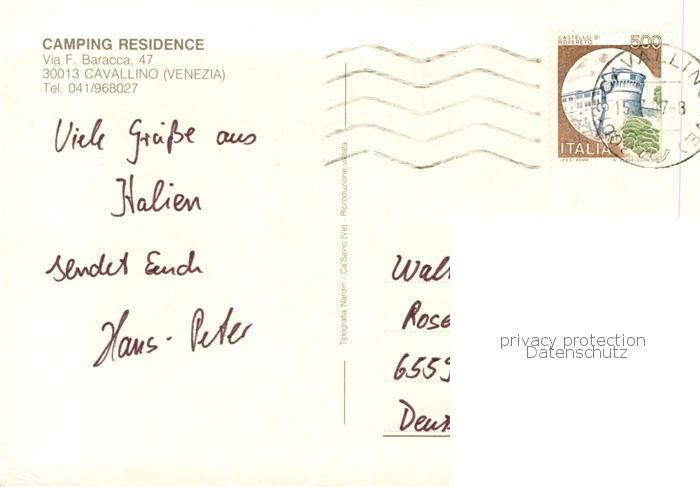 CAMPING RESIDENCE
Via F. Baracca, 47
30013 CAVALLINO (VENEZIA)
Tel. 041/968027
Viele Grüße aus
Italien
sendet Euch
Hans-Peter
Tipografia Nardin - Ca'Savio (Ve) - Riproduzione vietata
CASTELLO DI
ROVERETO
500
ITALIA
I.P.Z.S. ROMA
CAVALLINO
Wal
Rose
6559
privacy protection
Datenschutz